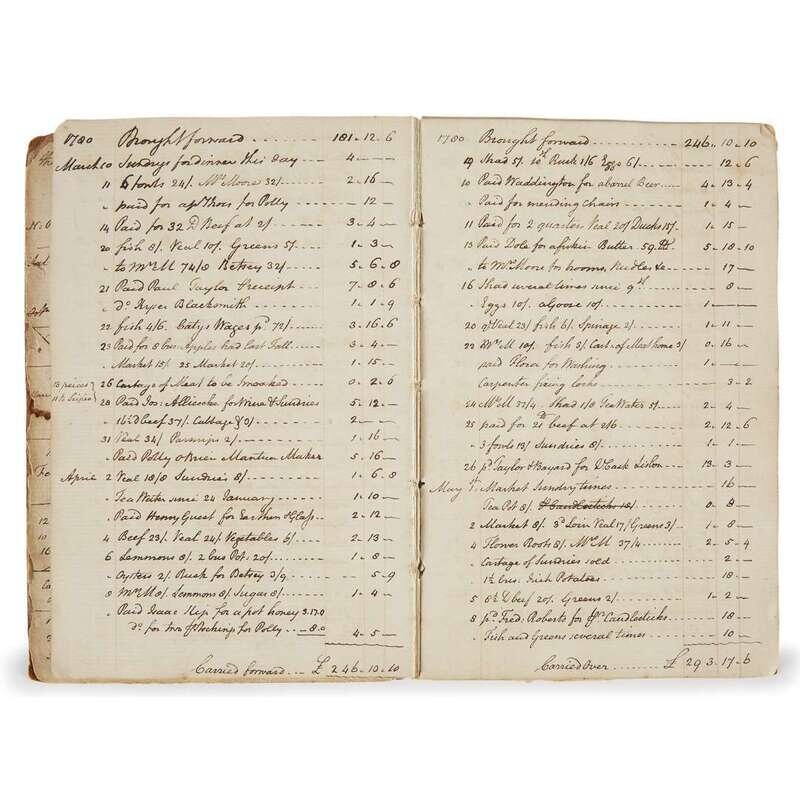 1780 Brought forward ........ 181 - 12 - 6
March 10 Sundrys for dinner this day ..... 4 - —
11 6 fowls 24/. Mrs Moore 32/ ........ 2 - 16 -
" paid for a pr Shoes for Polly ........ — 12 —
14 Paid for 32 lb Beef at 2/ ......... 3 - 4 —
20 fish 8/. Veal 10/. Greens 5/. ...... 1 - 3 -
" to Mrs M 74/8 Betsey 32/ ...... 5 - 6 - 8
21 Paid Paul Taylor receipt ...... 7 - 8 - 6
" do Kyser Blacksmith ........ 1 - 1 - 9
22 fish 4/6. Catys Wages pd 72/ ...... 3 - 16 - 6
23 Paid for 8 bus Apples had last Fall ... 3 - 4 —
" Market 15/. 25 Market 20/. ........ 1 - 15 —
13 peices
26 Cartage of Meat to be Smoaked .... 0 - 2 - 6
28 Paid Jos: for Wine & Sundries 5 - 12 —
" beef 37/. Cabbage 3/) ...... 2 — —
31 Veal 34/ Parsnips 2/. ......... 1 - 16 —
" Paid Polly O'Brien Mantua Maker 5 - 16 —
April 2 Veal 18/8 Sundries 8/ ........ 1 - 6 - 8
" Tea Water since 24 January ...... 1 - 10 —
" Paid Henry Guest for Earthen & Glass .. 2 - 12 —
4 Beef 23/. Veal 24/. Vegetables 6/ ..... 2 - 13 —
6 Lemmons 8/. 2 bus Pot: 20/. ....... 1 - 8 —
" Oysters 2/. Buck for Betsey 3/9 ...... — 5 - 9
8 Mrs M 8/. Lemmons 8/. Sugar 8/. ..... 1 - 4 —
" Paid Isaac for a pot honey 3.17.0
do for two Stockings for Polly ... 8.0 4 - 5 —
Carried forward .... £ 246 - 10 - 10
1780 Brought forward ........ 246 - 10 - 10
9 Shad 5/. Buck 1/6 Eggs 6/. ........ — 12 - 6
10 Paid Waddington for a barrel Beer .... 4 - 13 - 4
" Paid for mending chain ........ 1 - 4 —
11 Paid for 2 quarters Veal 20/ Ducks 15/. 1 - 15 —
13 Paid Dole for a firkin Butter 59 lb 5 - 18 - 10
" to Mrs Moore for brooms, Needles &c .... — 17 —
16 Shad several times since 9th ...... — 8 —
" Eggs 10/. a Goose 10/. ......... 1 — —
20 qr Veal 23/ fish 6/. Spinage 2/. ....... 1 - 11 —
22 Mrs M 10/. fish 3/ Cart. of Meat home 3/ 0 - 16 —
paid Flora for Washing ......... 1 — —
Carpenter fixing locks ........ 3 - 2
24 Mrs M 37/4 Shad 1/8 Tea Water 5/. ..... 2 - 4 —
25 paid for 21 lb beef at 2/6 ....... 2 - 12 - 6
" 3 fowls 13/ Sundries 8/. ........ 1 - 1 —
26 pd Taylor & Bayard for Cask Lisbon ... 13 - 3 —
May 1st Market Sundry times ........ — 16 —
Tea Pot 8/. pr Candlesticks 18/ ....... 0 - 8 —
2 Market 8/. 3d Loin Veal 17/ Greens 3/ ... 1 - 8 —
4 Flower Roots 8/. Mrs M 37/4 ....... 2 - 5 - 4
" Cartage of Sundries sold ........ — 2 —
" 1½ bus: Irish Potatoes ........ — 18 —
5 beef 20/. Greens 2/. ........ 1 - 2 —
8 pd Fred. Roberts for pr Candlesticks ..... — 18 —
" Fish and Greens several times ...... — 10 —
Carried Over ..... £ 293 - 17 - 6